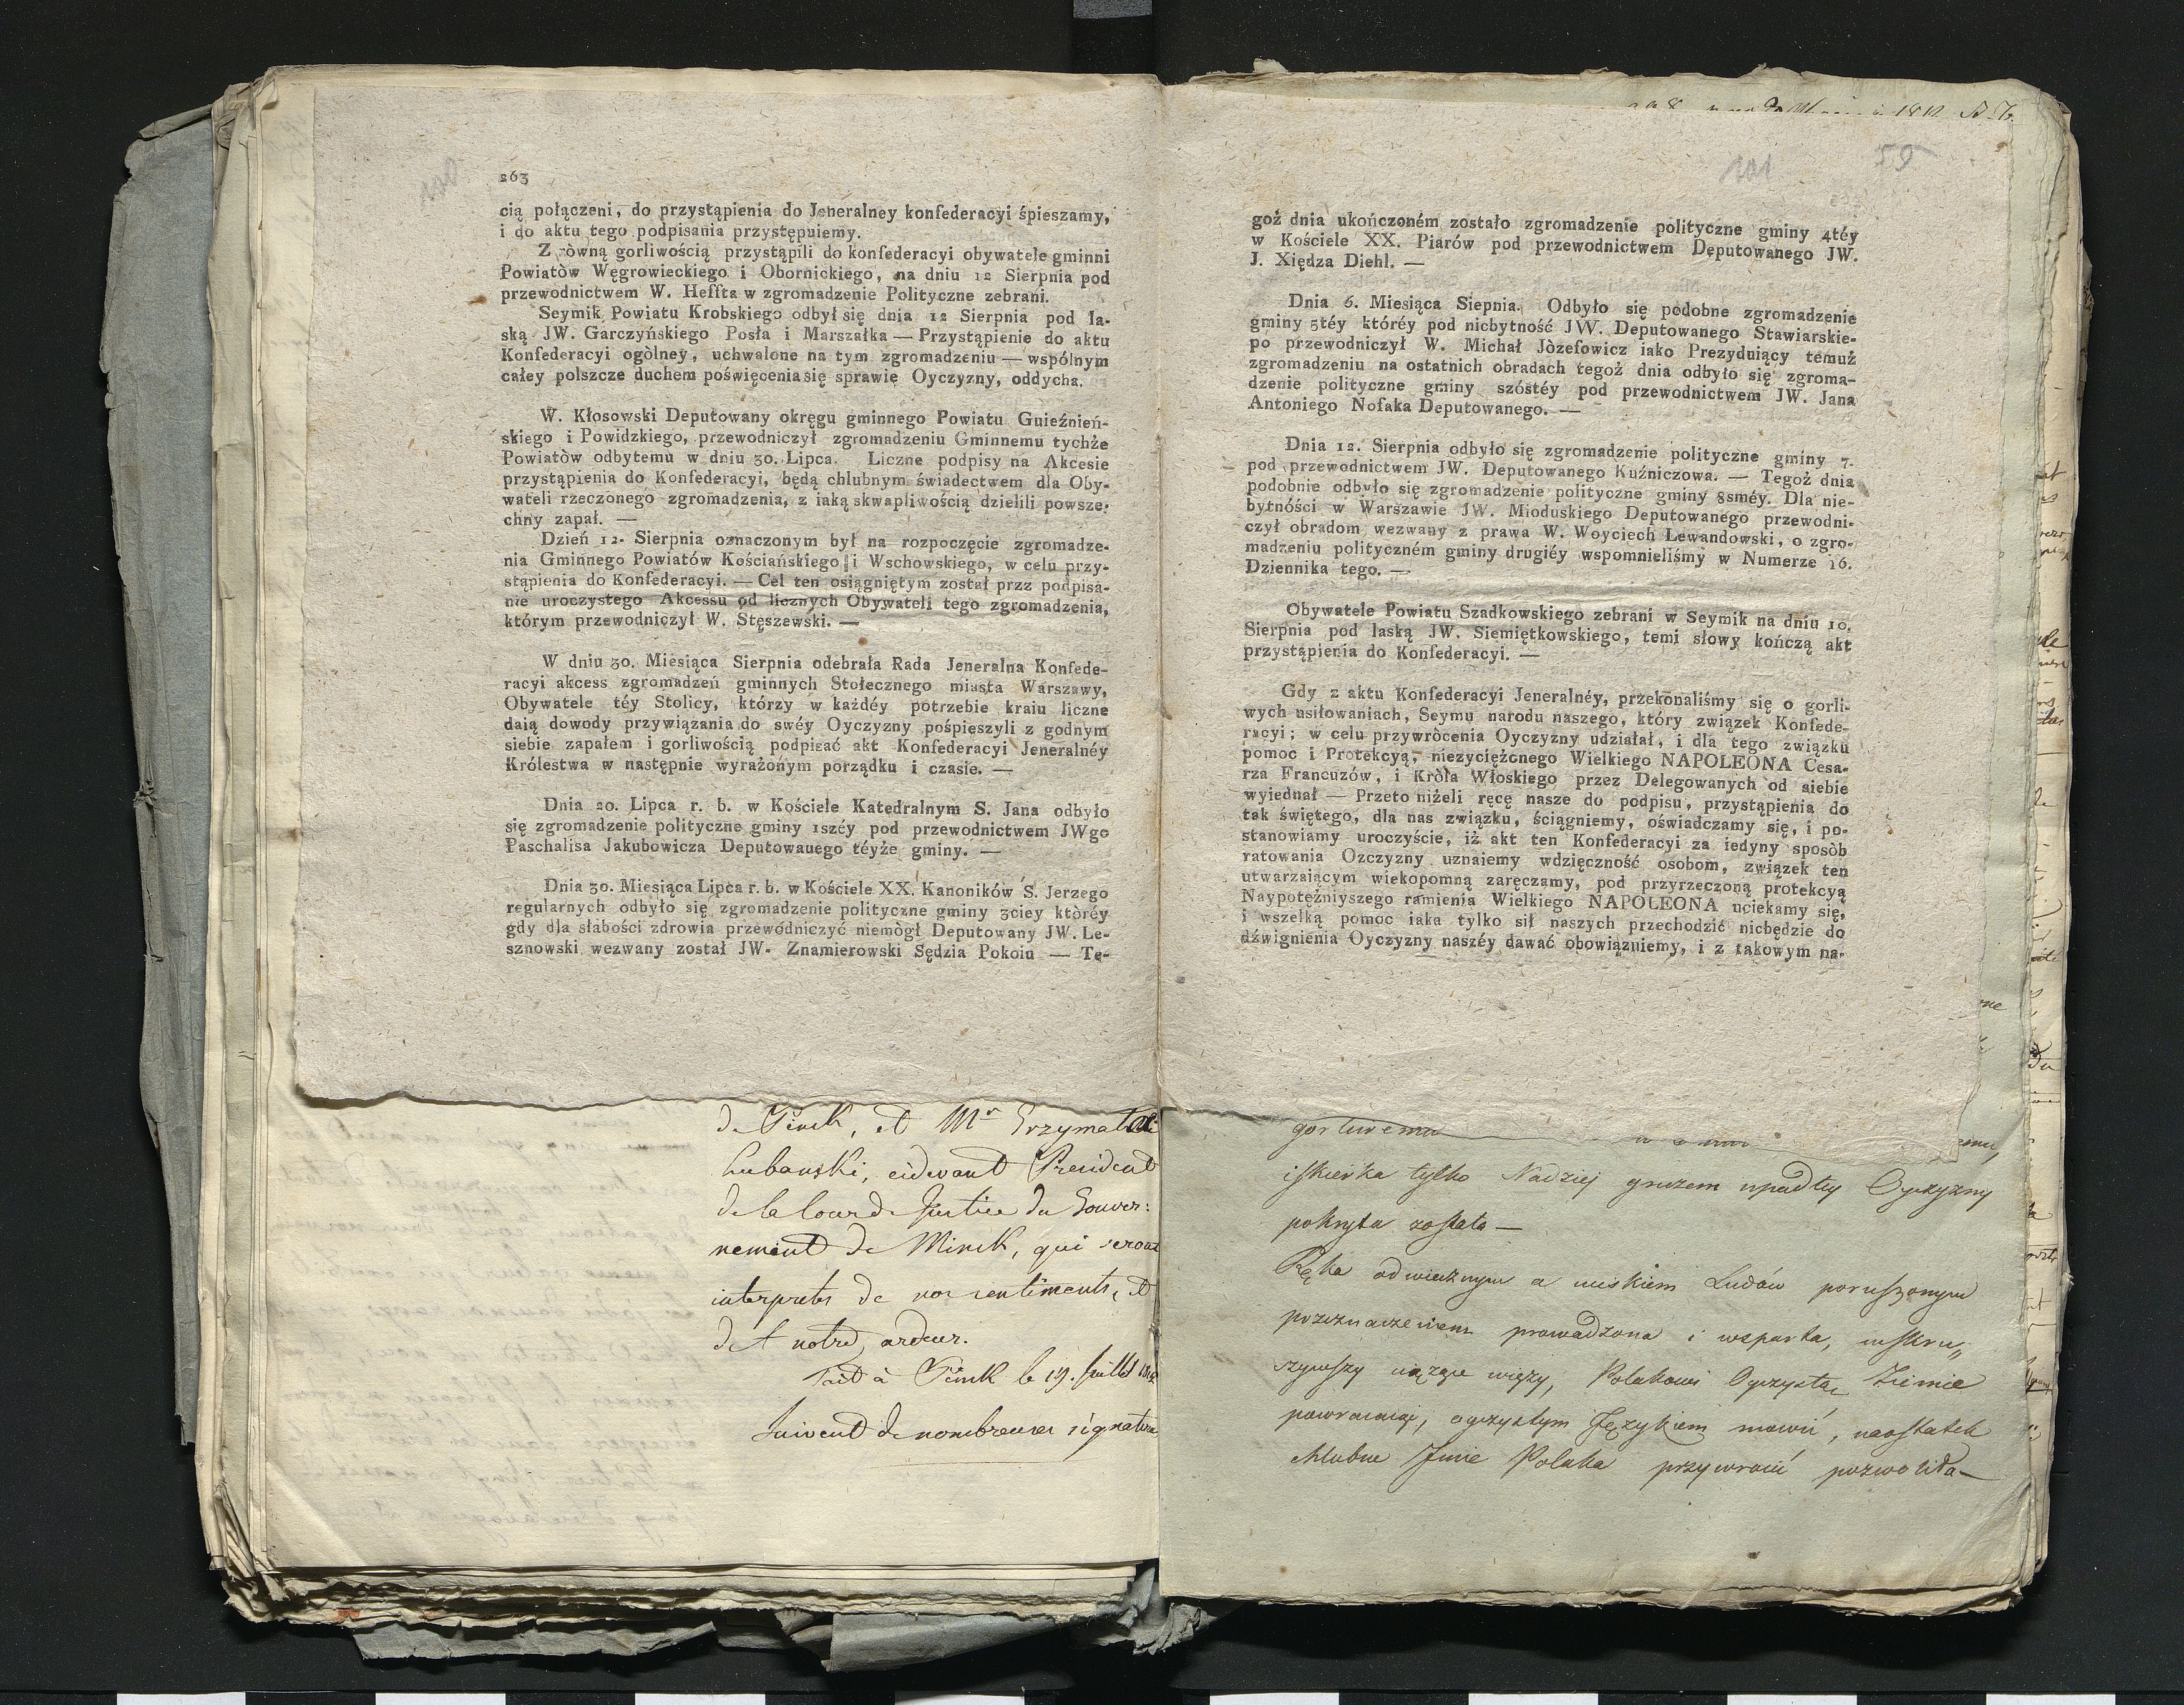 263
cią połączeni, do przystąpienia do Jeneralney konfederacyi śpieszamy,
i do aktu tego podpisania przystępuiemy.
Z równą gorliwością przystąpili do konfederacyi obywatele gminni
Powiatòw Węgrowieckiego i Obornickiego, na dniu 12 Sierpnia pod
przewodnictwem W. Heffta w zgromadzenie Polityczne zebrani.
Seymik Powiatu Krobskiego odbył się dnia 12 Sierpnia pod la-
ską JW. Garczyńskiego Posła i Marszałka — Przystąpienie do aktu
Konfederacyi ogòlney, uchwalone na tym zgromadzeniu — wspólnym
całey polszcze duchem poświęcenia się sprawie Oyczyzny, oddycha.
W. Kłosowski Deputowany okręgu gminnego Powiatu Gnieźnień-
skiego i Powidzkiego, przewodniczył zgromadzeniu Gminnemu tychże
Powiatòw odbytemu w dniu 30. Lipca. Liczne podpisy na Akcesie
przystąpienia do Konfederacyi, będą chlubnym świadectwem dla Oby-
wateli rzeczonego zgromadzenia, z iaką skwapliwością dzielili powsze-
chny zapał. —
Dzień 12. Sierpnia oznaczonym był na rozpoczęcie zgromadze-
nia Gminnego Powiatów Kościańskiego i Wschowskiego, w celu przy-
stąpienia do Konfederacyi. — Cel ten osiągniętym został przz podpisa-
nie uroczystego Akcessu od licznych Obywateli tego zgromadzenia,
którym przewodniczył W. Stęszewski. —
W dniu 30. Miesiąca Sierpnia odebrała Rada Jeneralna Konfede-
racyi akcess zgromadzeń gminnych Stołecznego miasta Warszawy,
Obywatele téy Stolicy, którzy w każdéy potrzebie kraiu liczne
daią dowody przywiązania do swéy Oyczyzny pośpieszyli z godnym
siebie zapałem i gorliwością podpisać akt Konfederacyi Jeneralnéy
Królestwa w następnie wyrażonym porządku i czasie. —
Dnia 20. Lipca r. b. w Kościele Katedralnym S. Jana odbyło
się zgromadzenie polityczne gminy 1széy pod przewodnictwem JWgo
Paschalisa Jakubowicza Deputowauego téyże gminy. —
Dnia 30. Miesiąca Lipca r. b. w Kościele XX. Kanoników S. Jerzego
regularnych odbyło się zgromadzenie polityczne gminy 3ciey któréy
gdy dla słabości zdrowia przewodniczyć niemògł Deputowany JW. Le-
sznowski wezwany został JW. Znamierowski Sędzia Pokoiu — Te-
de Pinsk, et Mr Grzymała
Lubanski, cidevant President
de la Cour de Justice du Gouver:
nement de Minsk, qui seront
interpretes de nos sentiments, et
de notre ardeur.
Fait à Pinsk le 19. Juillet 1812
Suivent de nombreuses signatures
101 59
goż dnia ukończoném zostało zgromadzenie polityczne gminy 4téy
w Kościele XX. Piarów pod przewodnictwem Deputowanego JW.
J. Xiędza Diehl. —
Dnia 6. Miesiąca Siepnia. Odbyło się podobne zgromadzenie
gminy 5téy któréy pod nicbytność JW. Deputowanego Stawiarskie-
po przewodniczył W. Michał Jòzefowicz iako Prezyduiący temuż
zgromadzeniu na ostatnich obradach tegoż dnia odbyło się zgroma-
dzenie polityczne gminy szóstéy pod przewodnictwem JW. Jana
Antoniego Nofaka Deputowanego. —
Dnia 12. Sierpnia odbyło się zgromadzenie polityczne gminy 7.
pod przewodnictwem JW. Deputowanego Kuźniczowa. — Tegoż dnia
podobnie odbyło się zgromadzenie polityczne gminy 8sméy. Dla nie-
bytnóści w Warszawie JW. Mioduskiego Deputowanego przewodni-
czył obradom wezwany z prawa W. Woyciech Lewandowski, o zgro-
madzeniu polityczném gminy drugiéy wspomnieliśmy w Numerze 16.
Dziennika tego. —
Obywatele Powiatu Szadkowskiego zebrani w Seymik na dniu 10.
Sierpnia pod laską JW. Siemiętkowskiego, temi słowy kończą akt
przystąpienia do Konfederacyi. —
Gdy z aktu Konfederacyi Jeneralnéy, przekonaliśmy się o gorli-
wych usiłowaniach, Seymu narodu naszego, który związek Konfede-
racyi; w celu przywròcenia Oyczyzny udziałał, i dla tego związku
pomoc i Protekcyą, niezyciężonego Wielkiego NAPOLEONA Cesa-
rza Francuzów, i Kròla Włoskiego przez Delegowanych od siebie
wyiednał — Przeto niżeli ręcę nasze do podpisu, przystąpienia do
tak świętego, dla nas związku, ściągniemy, oświadczamy się, i po-
stanowiamy uroczyście, iż akt ten Konfederacyi za iedyny sposòb
ratowania Ozczyzny uznaiemy wdzięczność osobom, związek ten
utwarzaiącym wiekopomną zaręczamy, pod przyrzeczoną protekcyą
Naypotężniyszego ramienia Wielkiego NAPOLEONA uciekamy się,
i wszelką pomoc iaka tylko sił naszych przechodzić nicbędzie do
dźwignienia Oyczyzny naszéy dawać obowiązniemy, i z takowym na-
iskierka tylko Nadziej gruzem upadłey Oyczyzny
pokryta została —
Ręka odwiecznym a uciskiem Ludów poruszonym
przeznaczeniem prowadzona i wsparta, wskru„
szywszy więzy, Polakowi Oyczystą Ziemię
oyczystym Językiem mowić, naostatek
chlubne Jmie Polaka przywrocić pozwoliła —